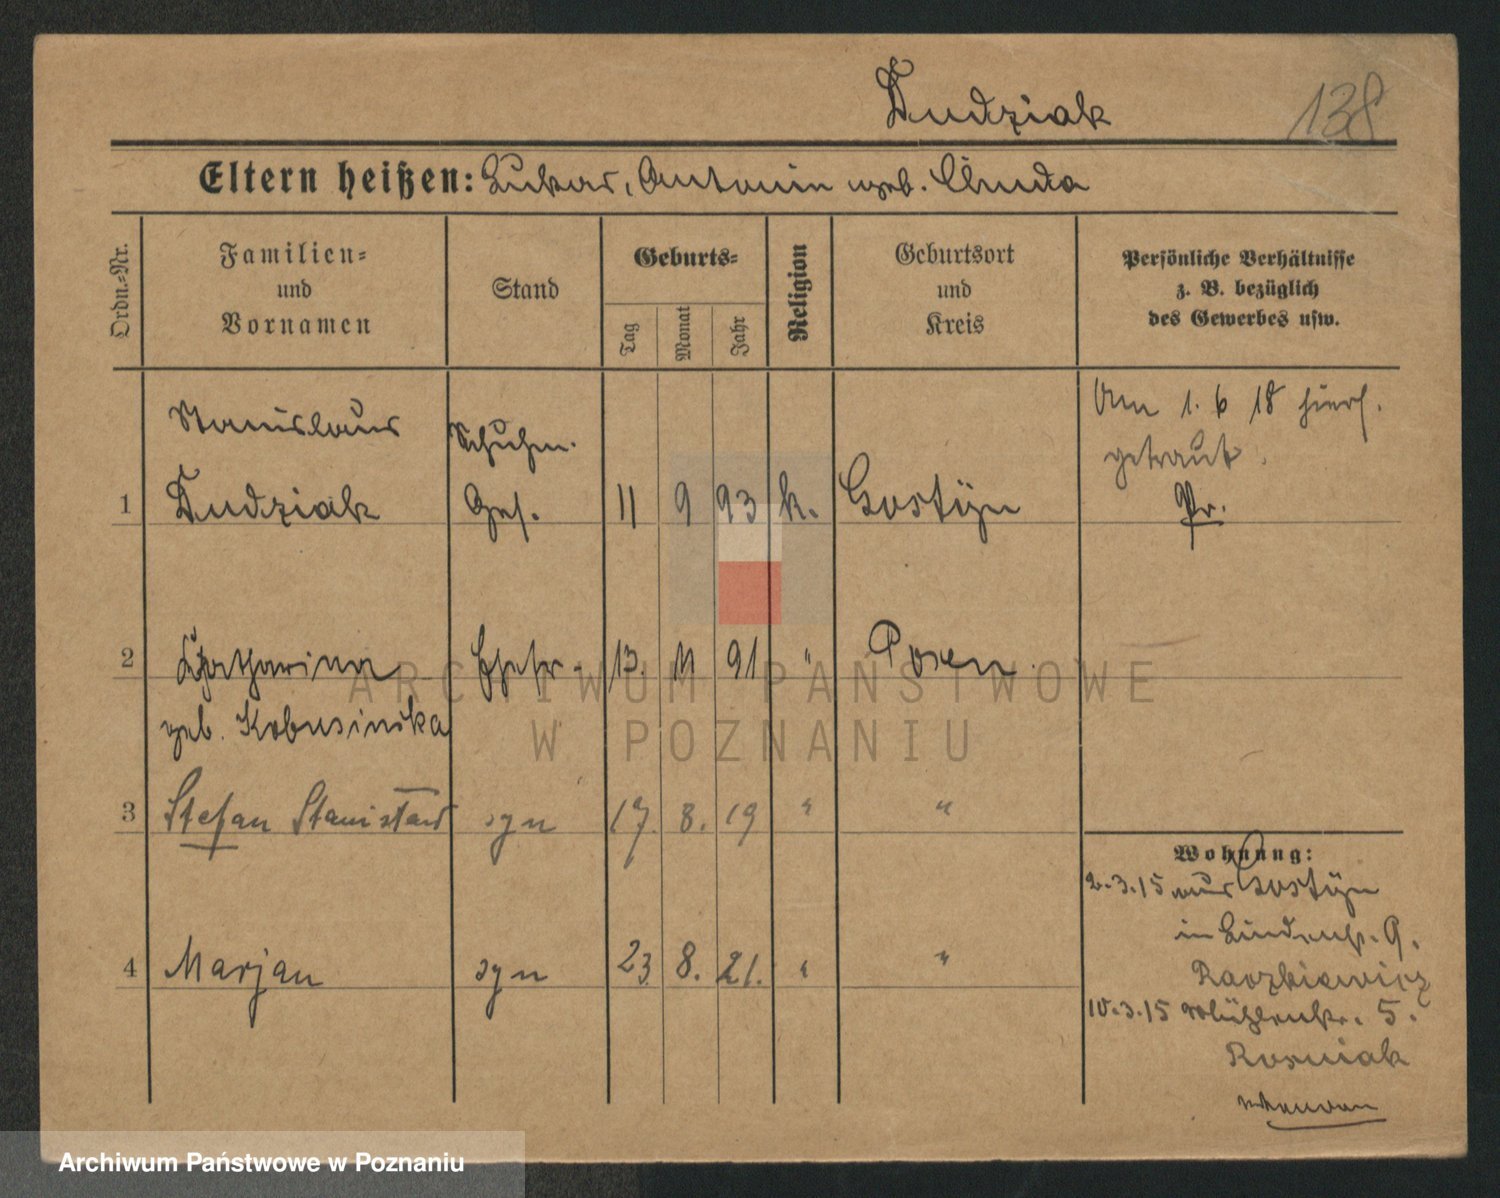 Dudziak
138
Eltern heißen: Lukas, Antonin geb. Chuda
Ordn.-Nr.
Familien-
und
Vornamen
Stand
Geburts-
Tag
Monat
Jahr
Religion
Geburtsort
und
Kreis
Persönliche Verhältnisse
z. B. bezüglich
des Gewerbes usw.
Stanislaus
Schuhm.
Am 1. 6 18 hiers.
getraut.
1 Dudziak Ges. 11 9 93 k. Gostÿn Pr.
2 Katharina Ehefr. 13. 11 91 " Posen
geb. Kobusinska
3 Stefan Stanisław syn 17. 8. 19 " "
Wohnung:
2.3.15 aus Gostÿn
in Lindenstr. 9.
4 Marjan syn 23 8. 21. " "
Raczkiewicz
10.3.15 Mühlenstr. 5.
Rosniak
ARCHIWUM PAŃSTWOWE
W POZNANIU
Archiwum Państwowe w Poznaniu